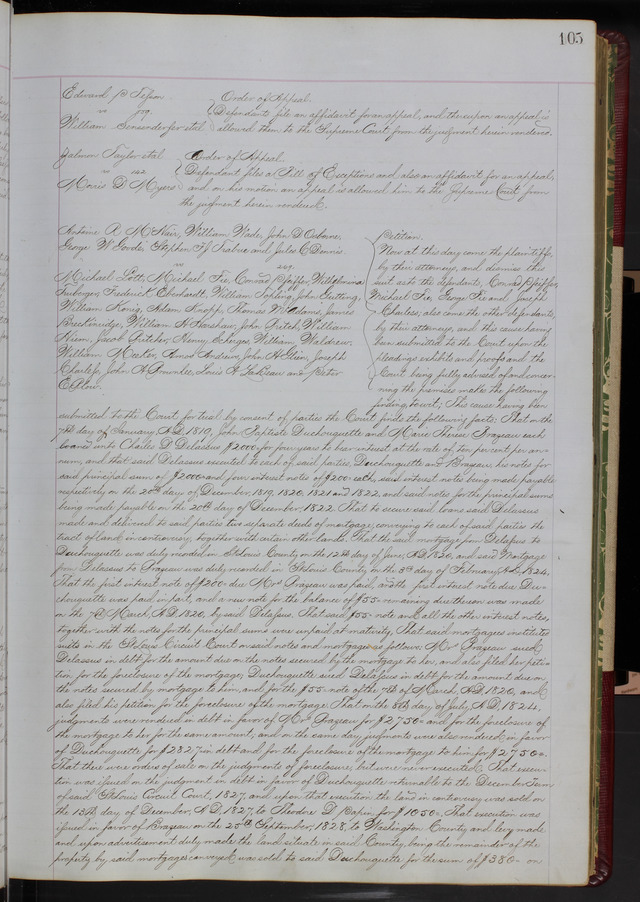 105
Edward P Tesson } Order of Appeal.
vs 739 Defendants file an affidavit for an appeal, and thereupon an appeal is
William Sensenderfer et al allowed them to the Supreme Court from the judgment herein rendered.
Taylor et al } Order of Appeal.
vs 142 Defendant files a Bill of Exceptions and also an affidavit for an appeal,
Moris D Myers and on his motion an appeal is allowed him to the Supreme Court from
the judgment herein rendered.
Antoine A. McNair, William Wade, John D Osborne, } Petition.
George W Goode, Stephen F J Trabue and Jules C Dennis. Now at this day come the plaintiffs,
vs 249. by their attorneys, and dismiss this
Michael Lott, Michael Fix, Conrad Pfeiffer, Wilhelmina suit as to the defendants, Conrad Pfeiffer,
Frederick Eberhardt, William Topling, John Gutting, Michael Fix, George Fix and Joseph
William Konig, Adam Knopp, Thomas W Adams, James Charless, also come the other defendants,
Breckinridge, William H Harshaw, John Ritch, William by their attorneys, and this cause having
Hiem, Jacob Pitcher, Henry William Waldrew, been submitted to the Court upon the
William Necker, Amos Andrews, John H Glein, Joseph pleadings exhibits and proofs and the
Charless, John A Brownlee, Louis A LaBeau and Peter Court being fully advised of and concer-
E Blow. ning the premises makes the following
finding to wit; This cause having been
submitted to the Court for trial by consent of parties the Court finds the following facts: That on the
7th day of January A.D. 1819, John Baptiste Duchouquette and Marie Therese Brazeau each
loaned unto Charles D Delassus $2000 for four years to bear interest at the rate of ten per cent per an-
num, and that said Delassus executed to each of said parties, Duchouquette and Brazeau, his notes for
said principal sum of $2000 and four interest notes of $200 each, said interest notes being made payable
respectively on the 20th day of December, 1819, 1820, 1821 and 1822, and said notes for the principal sums
being made payable on the 20th day of December, 1822. That to secure said loans said Delassus
made and delivered to said parties two separate deeds of mortgage, conveying to each of said parties the
tract of land in controversy, together with certain other lands. That the said mortgage from Delassus to
Duchouquette was duly recorded in St Louis County on the 12th day of June, A.D. 1820, and said Mortgage
from Delassus to Brazeau was duly recorded in St Louis County on the 3d day of February, A.D. 1824.
That the first interest note of $200 due Mrs Brazeau was paid, and the first interest note due Du-
chouquette was paid in part, and a new note for the balance of $55 remaining due thereon was made
on the 7th March, A.D. 1820, by said Delassus. That said $55 note and all the other interest notes,
together with the notes for the principal sums were unpaid at maturity. That said mortgagees instituted
suits in the St Louis Circuit Court on said notes and mortgages as follows: Mrs Brazeau sued
Delassus in debt for the amount due on the notes secured by the mortgage to her, and also filed her peti-
tion for the foreclosure of the mortgage; Duchouquette sued Delassus in debt for the amount due on
the notes secured by mortgage to him, and for the $55 note of the 7th of March, A.D. 1820, and
also filed his petition for the foreclosure of the mortgage. That on the 5th day of July, A.D. 1824,
judgments were rendered in debt in favor of Mrs Brazeau for $2750 and for the foreclosure of
the mortgage to her for the same amount, and on the same day judgments were also rendered in favor
of Duchouquette for $2827 in debt and for the foreclosure of the mortgage to him for $2750.
That there were orders of sale on the judgments of foreclosure, but were never executed. That execu-
tion was issued on the judgment in debt in favor of Duchouquette returnable to the December Term
of said St Louis Circuit Court, 1827, and upon that execution the land in controversy was sold on
the 13th day of December, A.D. 1827, to Theodore D Papin, for $1050. That execution was
issued in favor of Brazeau on the 25th September, 1828, to Washington County and levy made
and upon advertisement duly made the land situate in said County, being the remainder of the
property by said mortgage conveyed was sold to said Duchouquette for the sum of $380 on